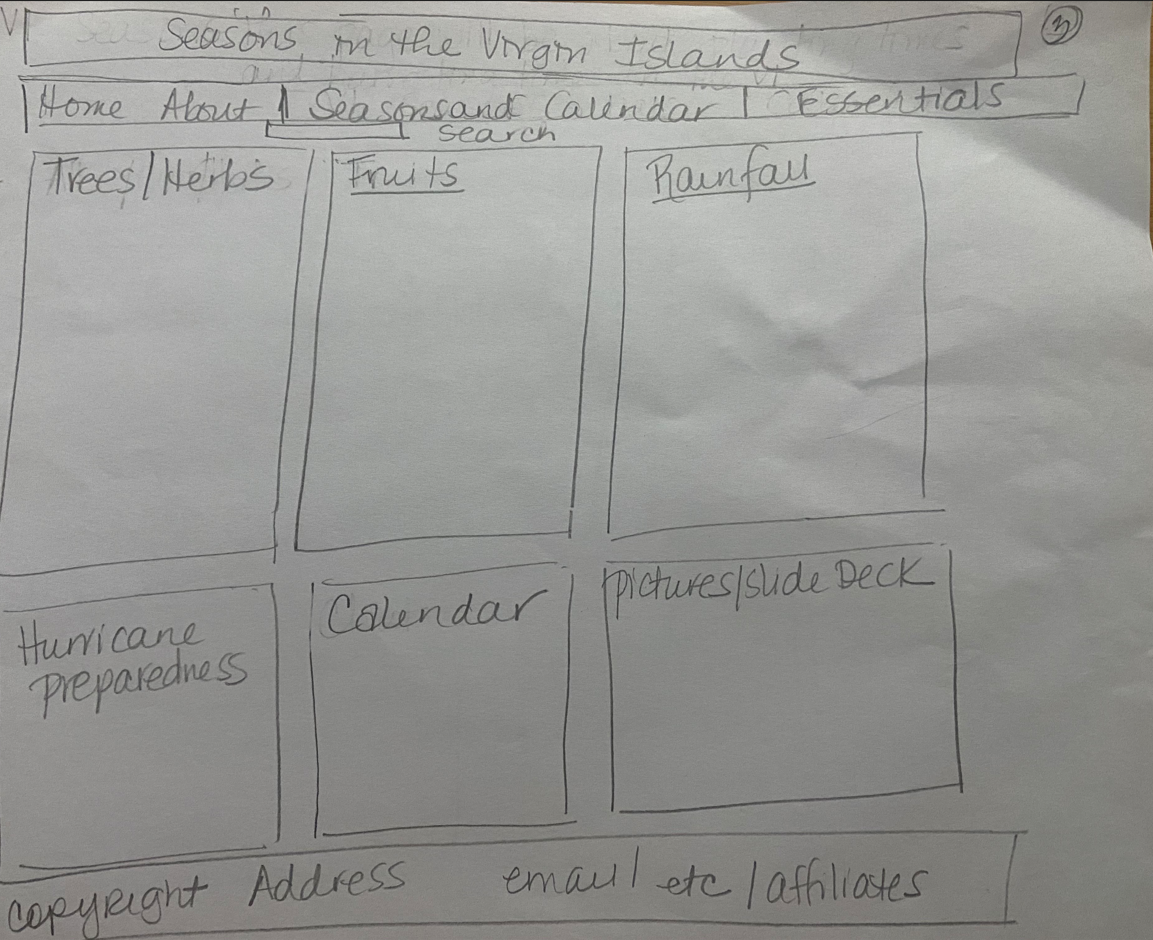 Seasons in the Virgin Islands
3
Home About | Seasons and Calendar | Essentials
search
Trees/Herbs
Fruits
Rainfall
Hurricane
preparedness
Calendar
pictures/slide Deck
copyright Address email/ etc / affiliates